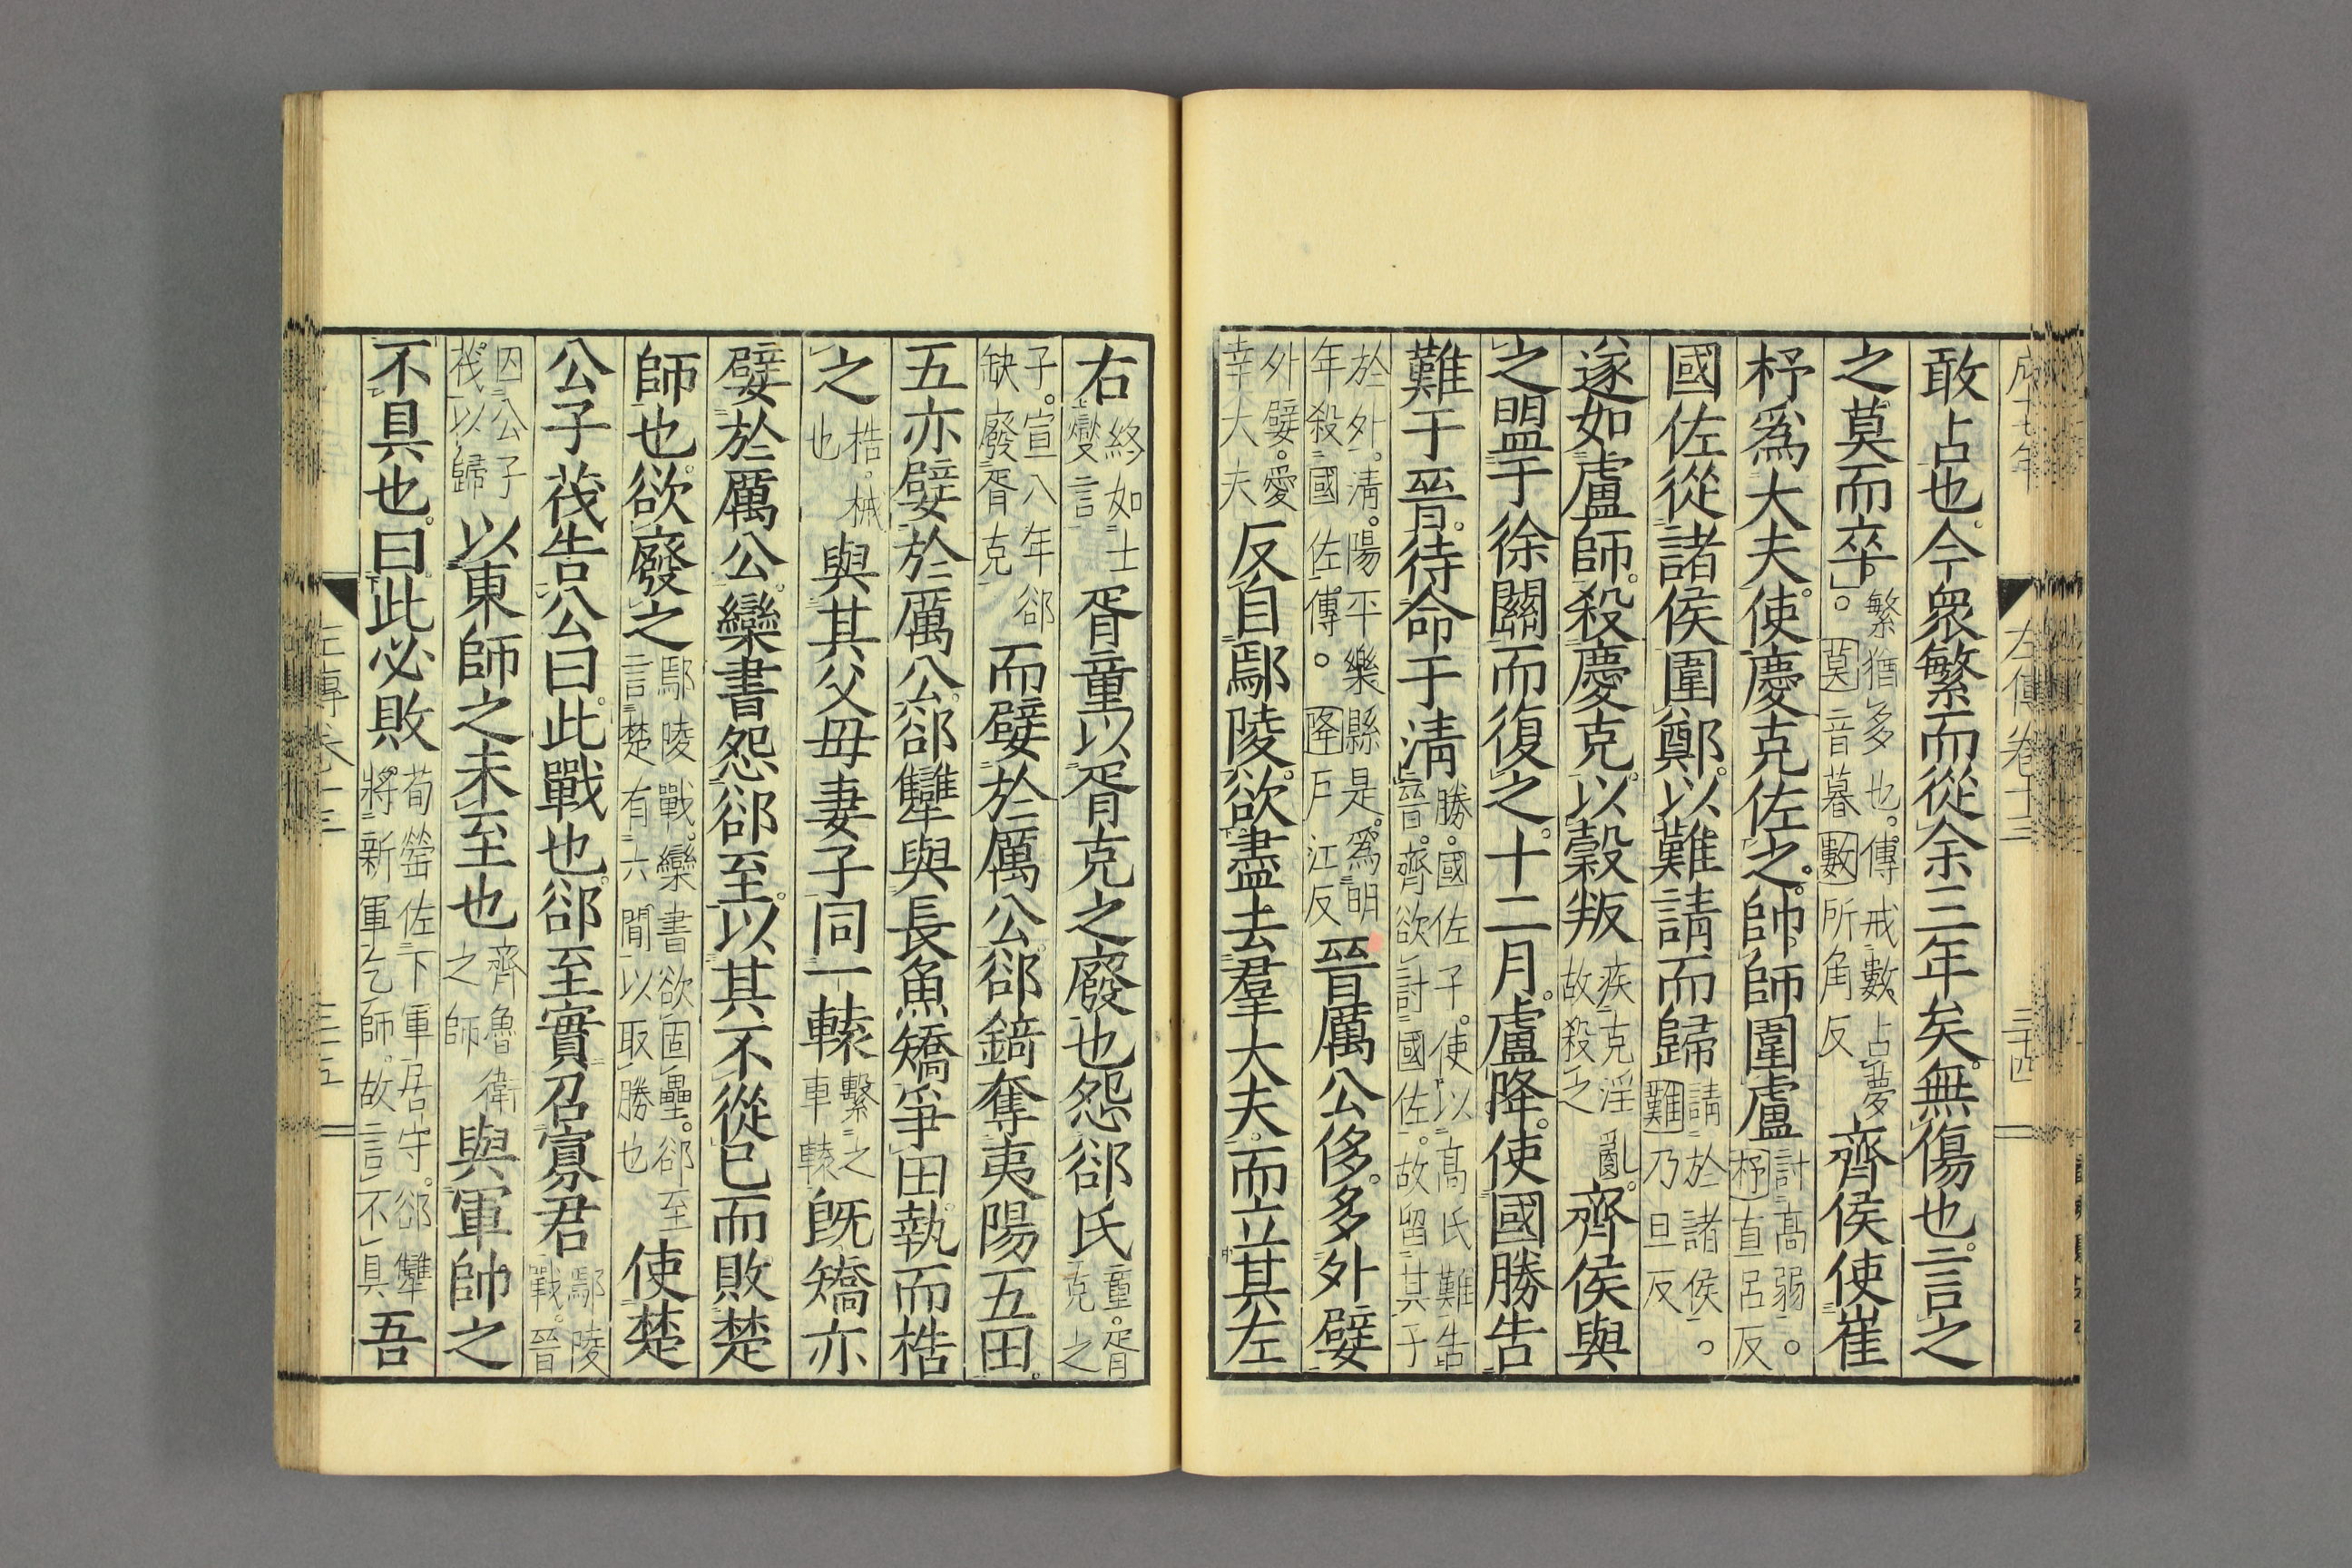 敢占也今衆繁而從余三年矣無傷也言之
之莫而卒繁猶多也傳戒數占夢莫音暮數所角反齊侯使崔
杼爲大夫使慶克佐之帥師圍盧討高弱杼直呂反
國佐從諸侯圍鄭以難請而歸請於諸侯難乃旦反
遂如盧師殺慶克以穀叛疾克淫亂故殺之齊侯與
之盟于徐關而復之十二月盧降使國勝告
難于晉待命于淸勝國佐子使以高氏難告晉齊欲討國佐故留其子
於外淸陽平樂縣是爲明年殺國佐傳降戶江反晉厲公侈多外嬖
外嬖愛幸大夫反自鄢陵欲盡去羣大夫而立其左
右終如士燮言胥童以胥克之廢也怨郤氏童胥克之
子宣八年郤缺廢胥克而嬖於厲公郤錡奪夷陽五田
五亦嬖於厲公郤犨與長魚矯爭田執而梏
之梏械也與其父母妻子同一轅繫之車轅旣矯亦
嬖於厲公欒書怨郤至以其不從已而敗楚
師也欲廢之鄢陵戰欒書欲固壘郤至言楚有六閒以取勝也使楚
公子茷告公曰此戰也郤至實召寡君鄢陵戰晉
囚公子茷以歸以東師之未至也齊魯衛之師與軍帥之
不具也曰此必敗荀罃佐下軍居守郤犨將新軍乞師故言不具吾
成十七年 左傳卷十三 三十四
左傳卷十三 三十五